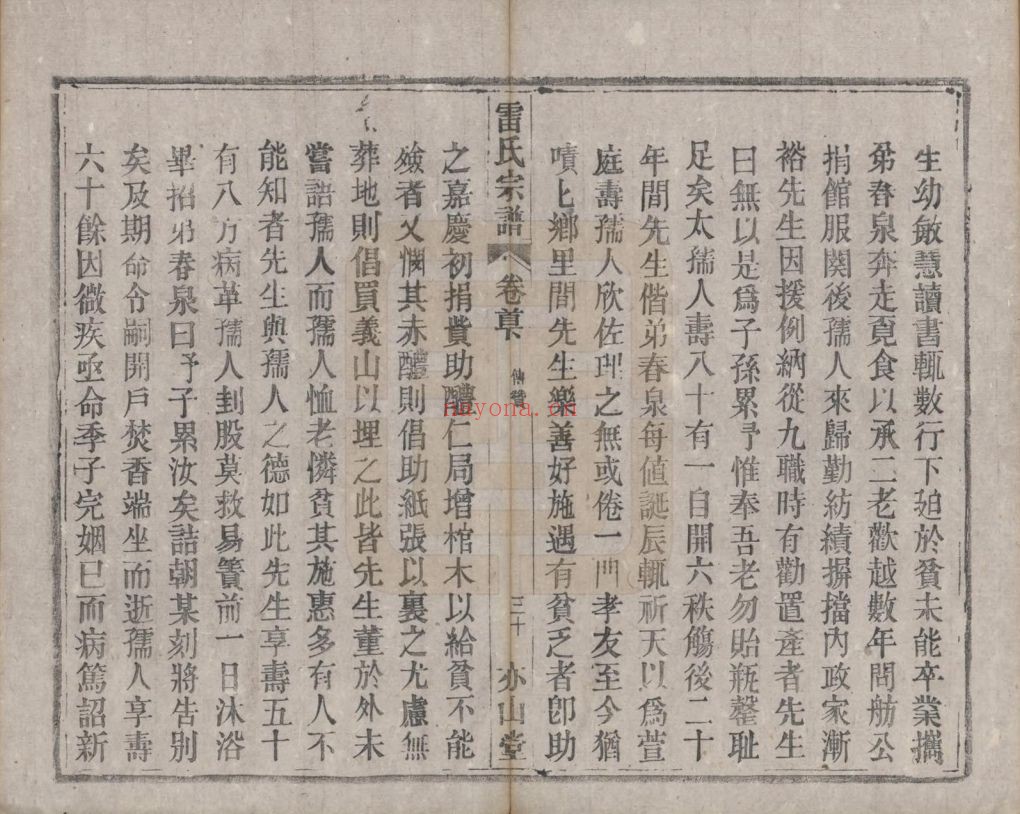 生幼敏慧讀書輒數行下廹於貧未能卒業攜
弟春泉奔走覔食以承二老歡越數年間舫公
捐館服闋後孺人來歸勤紡績摒擋內政家漸
裕先生因援例納從九職時有勸置產者先生
曰無以是爲子孫累予惟奉吾老勿貽瓶罄耻
足矣太孺人壽八十有一自開六秩觴後二十
年間先生偕弟春泉每値誕辰輒祈天以爲萱
庭壽孺人欣佐理之無或倦一門孝友至今猶
嘖上鄉里間先生樂善好施遇有貧乏者卽助
雷氏宗譜
卷首下
傳贊
三十
亦山堂
之嘉慶初捐貲助醴仁局增棺木以給貧不能
殮者又憫其赤體則倡助紙張以裏之尤慮無
葬地則倡買義山以埋之此皆先生董於外未
嘗語孺人而孺人恤老憐貧其施惠多有人不
能知者先生與孺人之德如此先生享壽五十
有八方病革孺人刲股莫救易簀前一日沐浴
畢招弟春泉曰予子累汝矣詰朝某刻將告別
矣及期命令嗣開戶焚香端坐而逝孺人享壽
六十餘因微疾亟命季子完姻巳而病篤詔新
hayona.cn